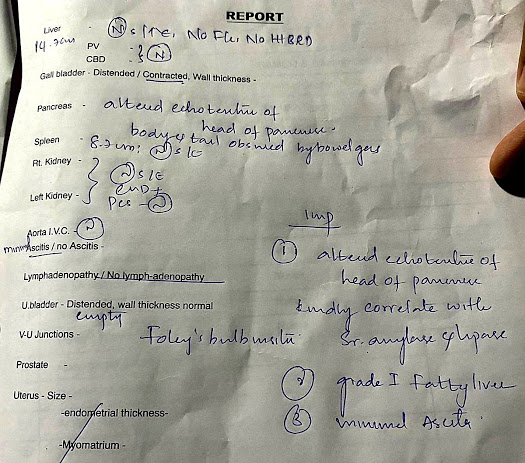 REPORT
Liver - N S/TE, No FL, No IHBRD
14.7cm
PV -
CBD - N
Gall bladder - Distended / Contracted, Wall thickness -
Pancreas - altered echotexture of
head of pancreas.
body & tail obscured by bowel gas
Spleen - 8.7 cm, N S/E
Rt. Kidney - N S/E
CMD +
Left Kidney - PCS - N
Aorta I.V.C. - N
minimal
Ascitis / no Ascitis -
Lymphadenopathy / No lymph-adenopathy
U.bladder - Distended, wall thickness normal
empty
V-U Junctions - Foley's bulb insitu
Prostate -
Uterus - Size -
-endometrial thickness-
-Myomatrium -
Imp
1 altered echotexture of
head of pancreas
kindly correlate with
Sr. amylase & lipase
2 grade I Fatty liver
3 minimal Ascites.